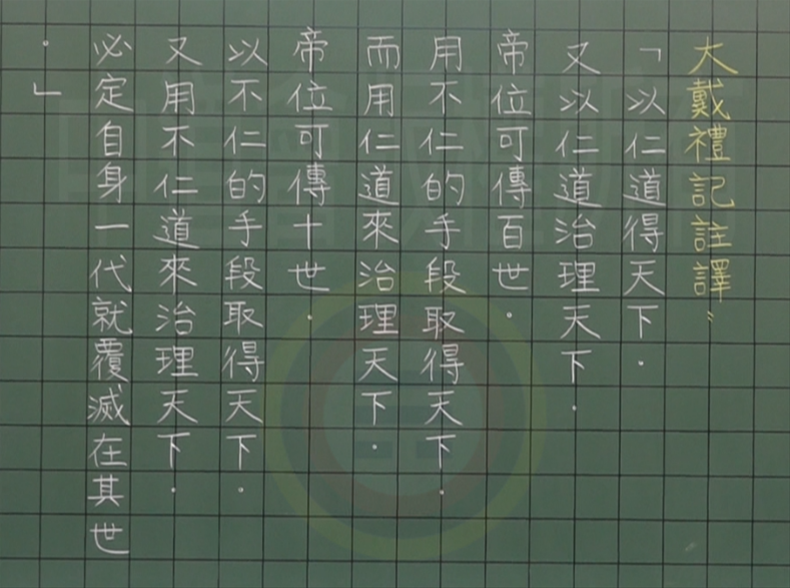 大戴禮記註譯：
「以仁道得天下．
又以仁道治理天下．
帝位可傳百世．
用不仁的手段取得天下．
而用仁道來治理天下．
帝位可傳十世．
以不仁的手段取得天下．
又用不仁道來治理天下．
必定自身一代就覆滅在其世
．」